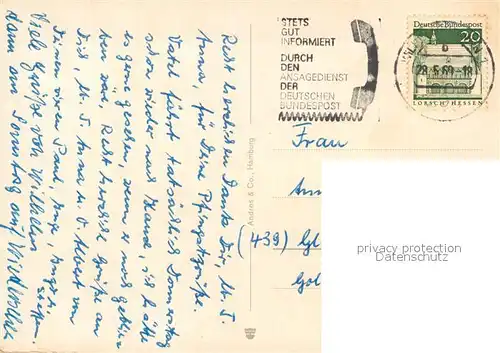 Recht herzlichen Dank Dir, lb. T.
Anna, für Deine Pfingstgrüße.
Vater fährt tatsächlich Donnerstag
schon wieder nach Hause, ich hätte
es gern gesehen, wenn er noch geblie-
ben wär. Recht herzliche Grüße an
Dich, lb. T. Anna u. O. Albert von
Deinen
Viele Grüße von Wilhelm
dann am Sonntag auf Wiedersehen
Andres & Co., Hamburg
STETS
GUT
INFORMIERT
DURCH
DEN
ANSAGEDIENST
DER
DEUTSCHEN
BUNDESPOST
Deutsche Bundespost
20
28.5.69-18
LORSCH/HESSEN
Frau
Ann
(439) Gl
Gol
privacy protection
Datenschutz